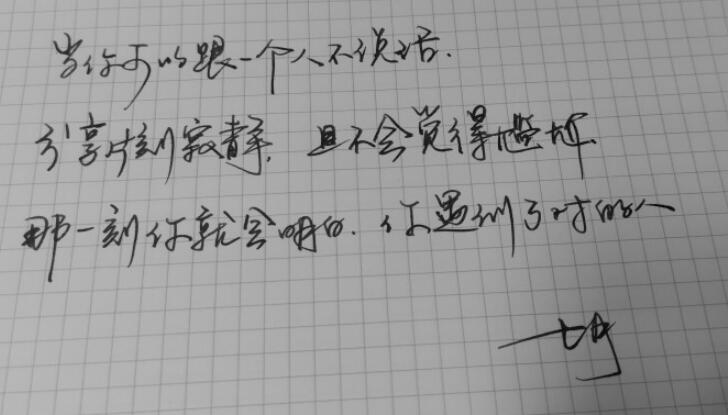 当你可以跟一个人不说话.
分享片刻寂静, 且不会觉得尴尬.
那一刻你就会明白. 你遇到了对的人